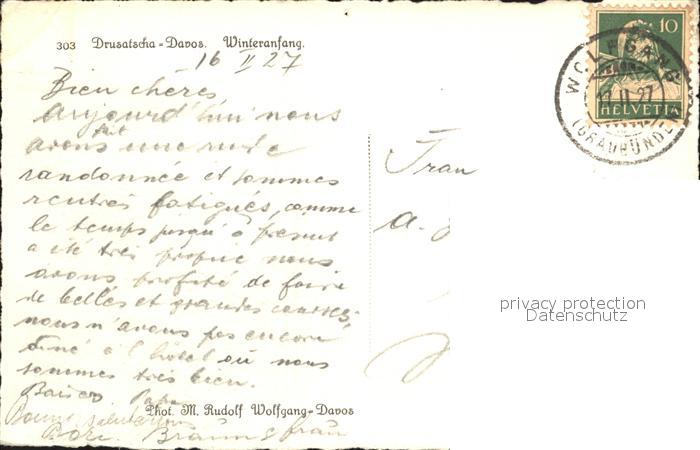 303 Drusatscha-Davos. Winteranfang.
16 II 27
Bien chères
Aujourd'hui nous
avons fait une rude
randonnée et sommes
rentrés fatigués, comme
le temps jusqu'à présent
a été très propice nous
avons profité de faire
de belles et grandes courses,
nous n'avons pas encore
diné à l'hôtel où nous
sommes très bien.
Baisers Papa
Bonne salutation
Frau
A.
Phot. M. Rudolf Wolfgang-Davos
10
HELVETIA
WOLFGANG
17.II.27
(GRAUBÜNDEN)
privacy protection
Datenschutz